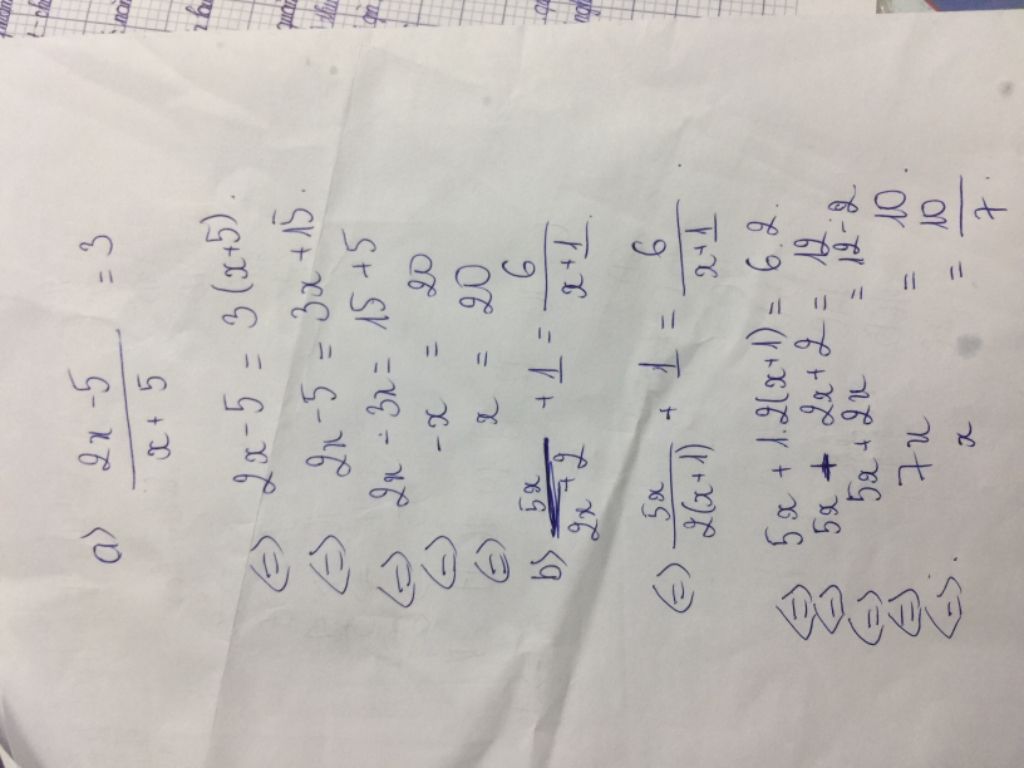 a) (2x - 5)/(x + 5) = 3
(=) 2x - 5 = 3(x+5).
(=) 2x - 5 = 3x + 15.
(=) 2x - 3x = 15 + 5
(=) -x = 20
(=) x = 20
b) 5x/(2x + 2) + 1 = 6/(x+1)
(=) 5x/(2(x+1)) + 1 = 6/(x+1)
(=) 5x + 1.2(x+1) = 6.2.
(=) 5x + 2x + 2 = 12
(=) 5x + 2x = 12 - 2
(=) 7x = 10.
(=) x = 10/7.